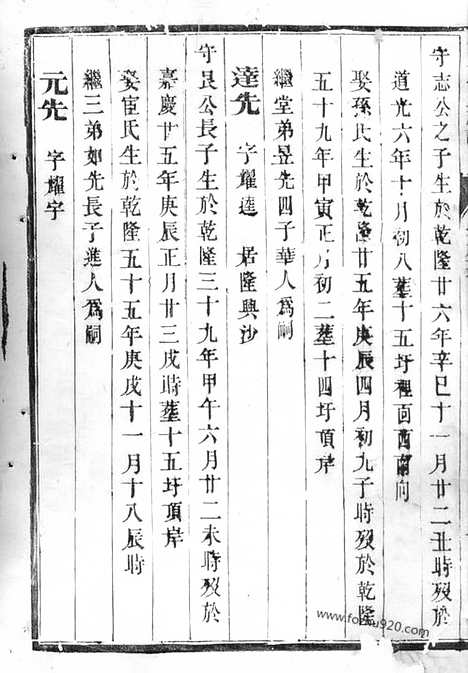 守志公之子生於乾隆廿六年辛巳十一月廿二丑時歿於
道光六年十月初八葬十五圩裡面酉南向
娶孫氏生於乾隆廿五年庚辰四月初九子時歿於乾隆
五十九年甲寅正月初二葬十四圩頂岸
繼堂弟昱先四子華人為嗣
達先 字耀遠 居隆興沙
守艮公長子生於乾隆三十九年甲午六月廿二未時歿於
嘉慶廿五年庚辰正月廿三戌時葬十五圩頂岸
娶宦氏生於乾隆五十五年庚戌十一月十八辰時
繼三弟如先長子進人為嗣
元先 字耀宇
www.foxhu920.com